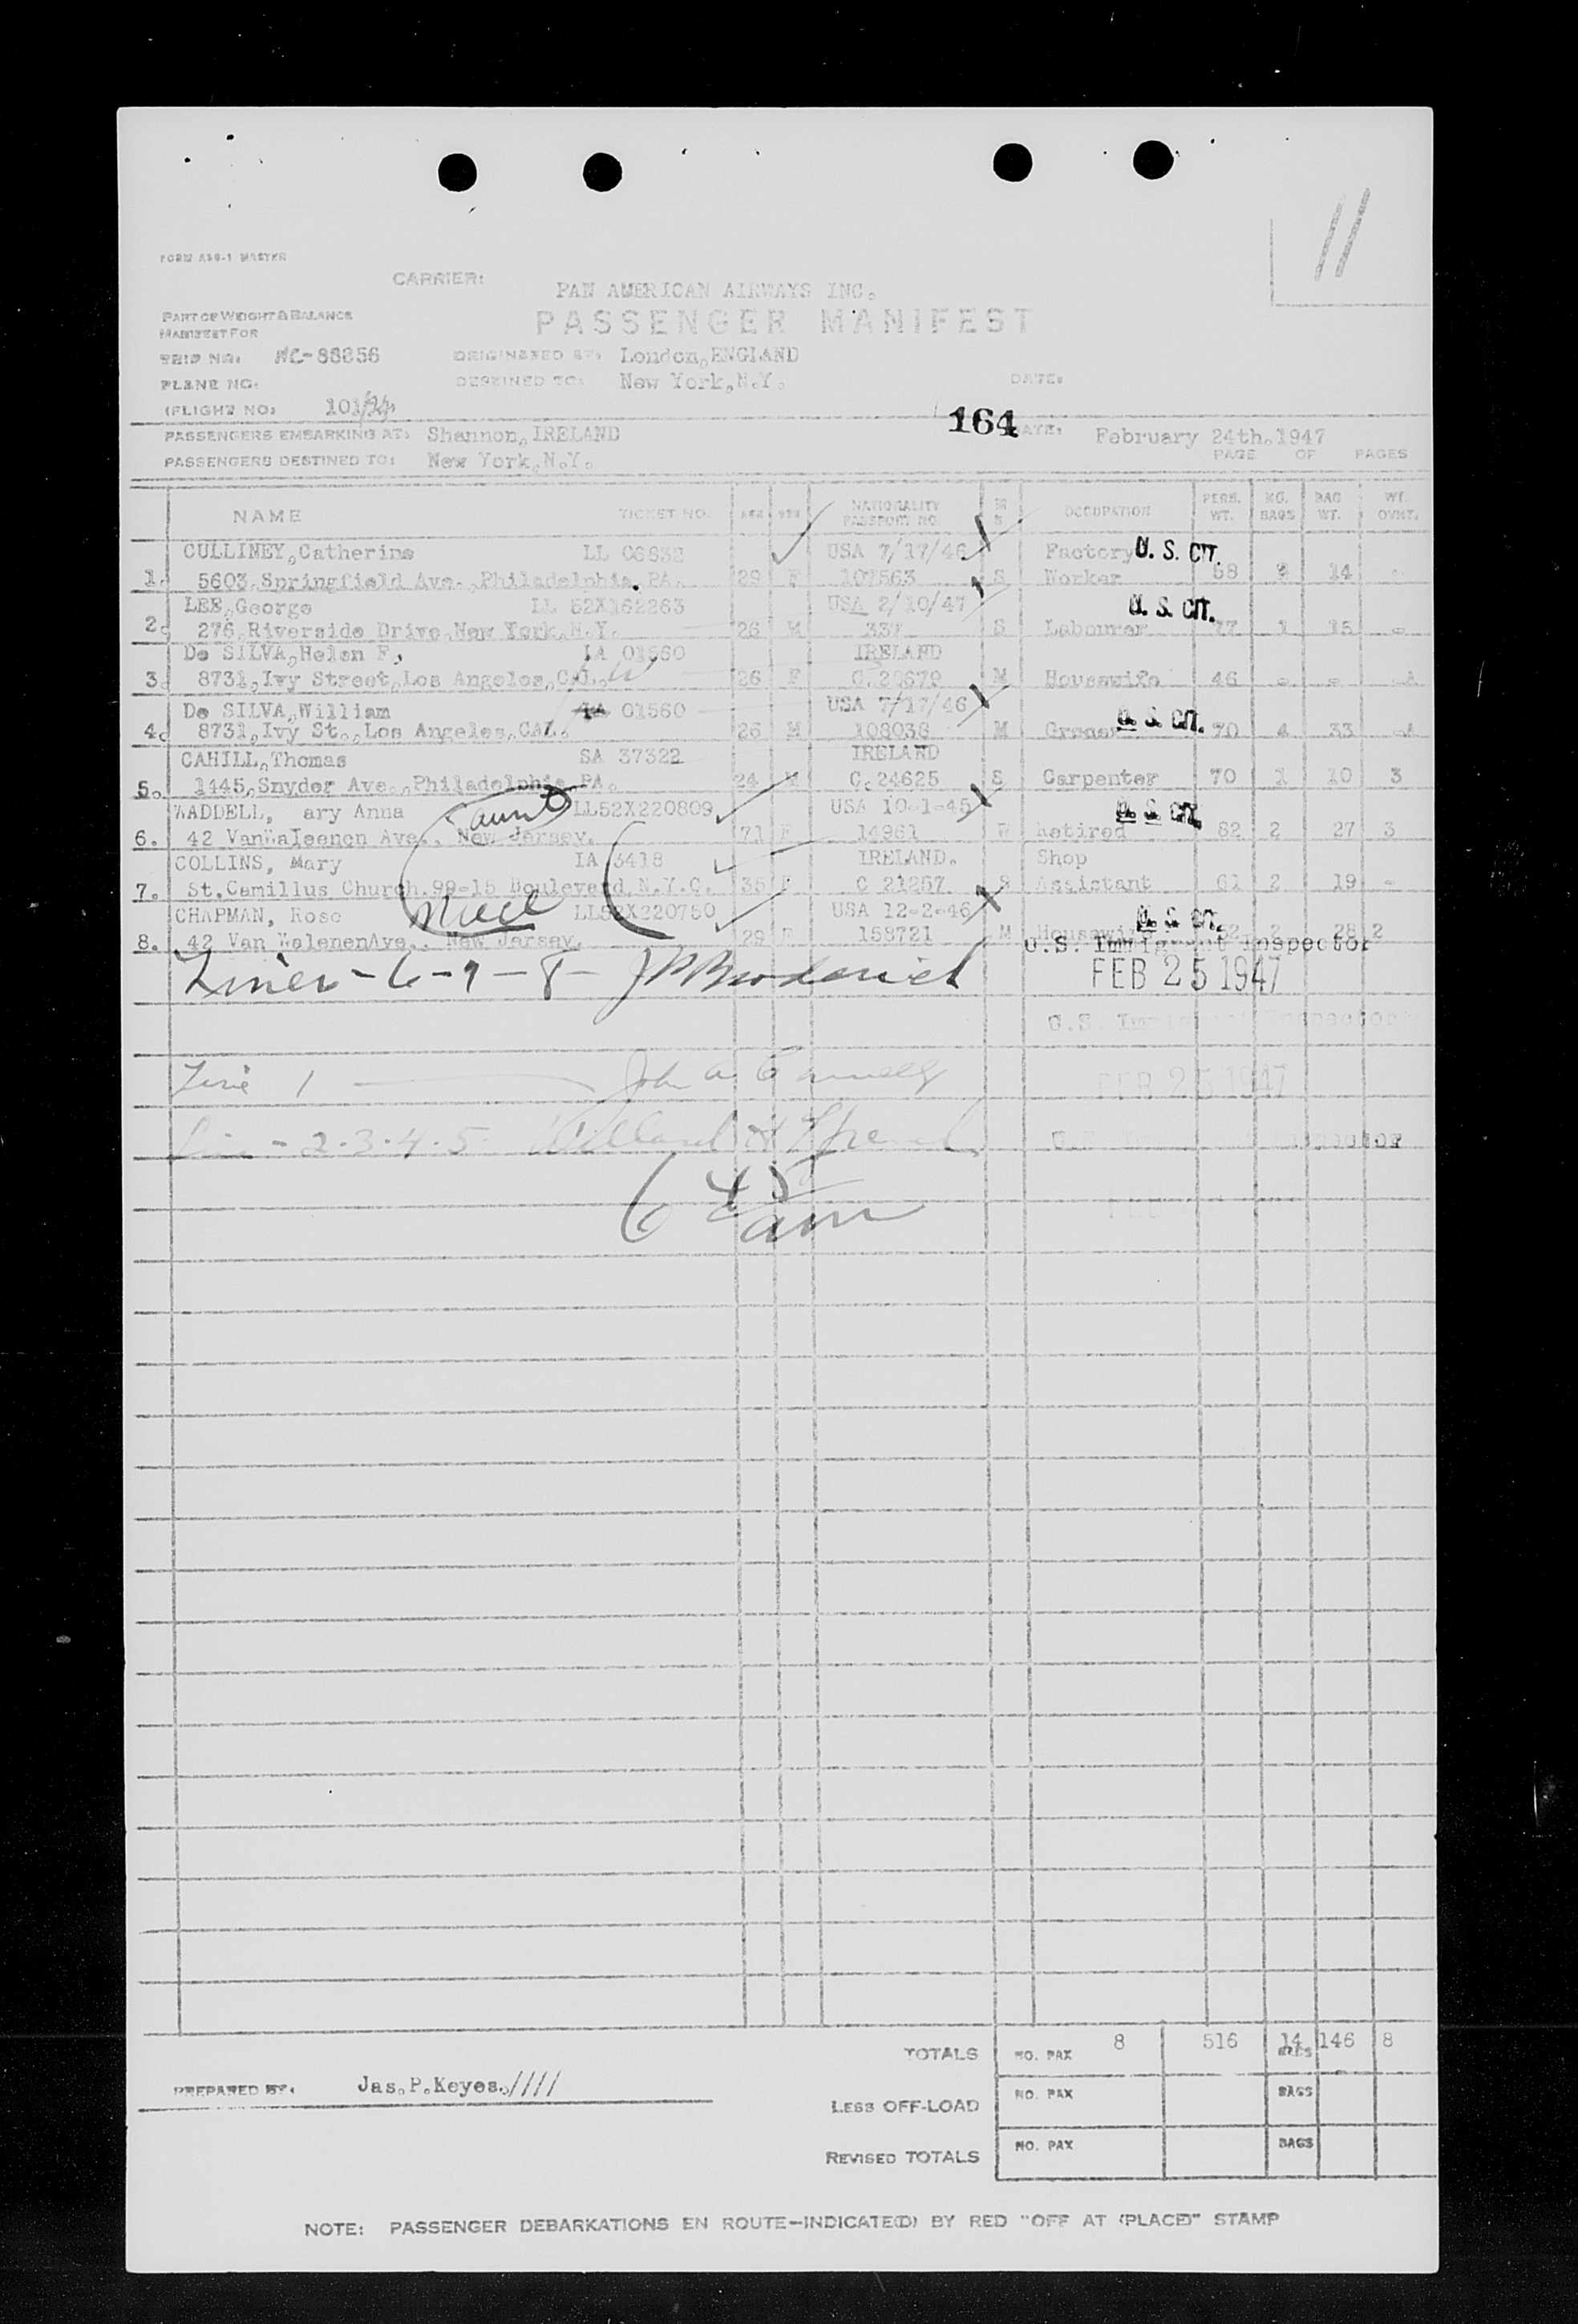 11
FORM ASG-1 MASTER
CARRIER:
PAN AMERICAN AIRWAYS INC.
PART OF WEIGHT & BALANCE
PASSENGER MANIFEST
MANIFEST FOR
SHIP NO: NC-88856 ORIGINATED AT: London, ENGLAND
PLANE NO: DESTINED TO: New York, N.Y. DATE:
(FLIGHT NO: 101/24
PASSENGERS EMBARKING AT: Shannon, IRELAND 164 DATE: February 24th. 1947
PASSENGERS DESTINED TO: New York, N.Y. PAGE OF PAGES
NAME TICKET NO. AGE SEX NATIONALITY PASSPORT NO. M S OCCUPATION PERS. WT. NO. BAGS BAG WT. WT. OVWT.
CULLINEY, Catherine LL USA 7/17/46 Factory U. S. CIT.
1. 5603, Springfield Ave., Philadelphia, PA. 29 F 107563 S Worker 58 2 14 -
LEE, George LL 52X162263 USA 2/10/47 U. S. CIT.
2. 276, Riverside Drive, New York, N.Y. 26 M 337 S Labourer 77 1 15 -
De SILVA, Helen F, IA 01560 IRELAND
3. 8731, Ivy Street, Los Angeles, CAL. 26 F C. M Housewife 46 - - -A
De SILVA, William IA 01560 USA 7/17/46 U. S. CIT.
4. 8731, Ivy St., Los Angeles, CAL. 26 M 108038 M 70 4 33 -A
CAHILL, Thomas SA 37322 IRELAND
5. 1445, Snyder Ave., Philadelphia, PA. 24 M C. 24625 S Carpenter 70 1 10 3
WADDELL, ary Anna aunt LL52X220809 USA 10-1-45 U. S. CIT.
6. 42 Ave., New Jersey. 71 F 14961 W Retired 82 2 27 3
COLLINS, Mary IA 3418 IRELAND. Shop
7. St. Camillus Church. 99-15 Boulevard, N.Y.C. 35 F C 21257 S Assistant 61 2 19 -
CHAPMAN, Rose niece LL52X220750 USA 12-2-46 U. S. CIT.
8. 42 Van WalenenAve., New Jersey. 29 F 158721 M Housewife 52 2 28 2
U.S. Immigrant Inspector
Lines - 6-7-8- J P Broderick FEB 25 1947
U.S. Immigrant Inspector
Line 1 John A FEB 25 1947
Line - 2.3.4.5 Willard H
6 45 am
TOTALS NO. PAX 8 516 14 BAGS 146 8
PREPARED BY: Jas. P. Keyes.////
LESS OFF-LOAD NO. PAX BAGS
REVISED TOTALS NO. PAX BAGS
NOTE: PASSENGER DEBARKATIONS EN ROUTE—INDICATE(D) BY RED "OFF AT (PLACE)" STAMP